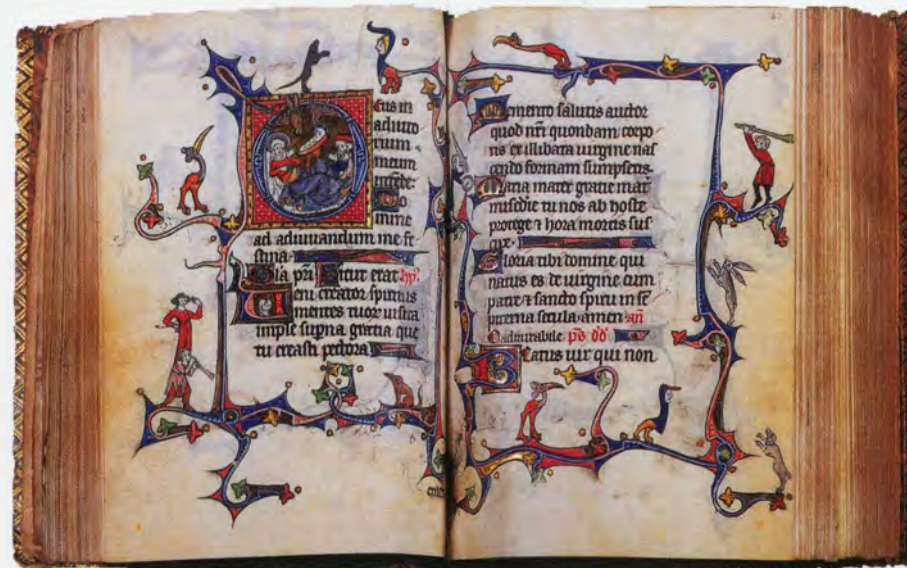 eus in
adiuto
rium
meum
intende·
Do
mine
ad adiuuandum me fe
stina·
Gl'ia pri Sicut erat hy
Ueni creator spiritus
mentes tuor uisita
imple supna gratia que
tu creasti pectora
67
Memento salutis auctor
quod nri quondam corpo
ris ex illibata uirgine nas
cendo formam sumpseris·
Maria mater gratie mat
misedie tu nos ab hoste
protege ⁊ hora mortis sus
cipe·
Gloria tibi domine qui
natus es de uirgine cum
patre ⁊ sancto spiritu in se
piterna secula·amen an
O admirabile ps dd
Beatus uir qui non